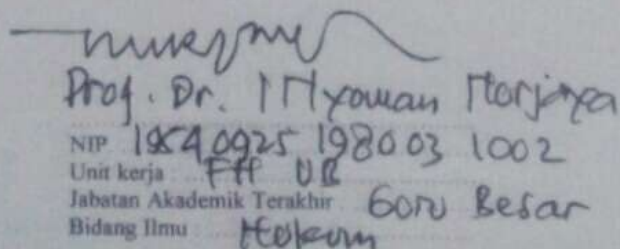 Prof. Dr. I Nyoman Nurjaya
NIP 19540925 198003 1002
Unit kerja FH UB
Jabatan Akademik Terakhir Guru Besar
Bidang Ilmu Hukum